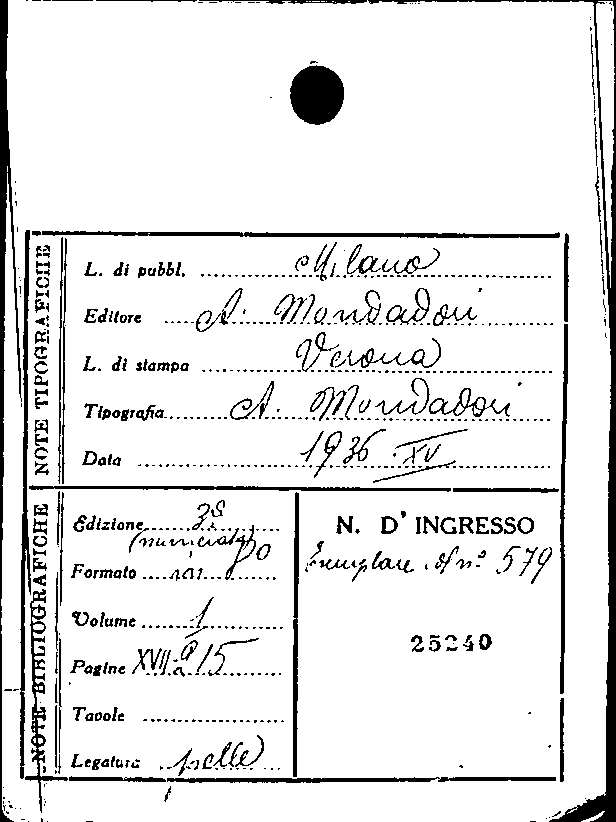 NOTE TIPOGRAFICHE
L. di pubbl. Milano
Editore A. Mondadori
L. di stampa Verona
Tipografia A. Mondadori
Data 1936 XV
NOTE BIBLIOGRAFICHE
Edizione 3ª
(numerata)
Formato in 8º
Volume 1
Pagine XVII-215
Tavole
Legatura pelle
N. D' INGRESSO
Esemplare nº 579
25240